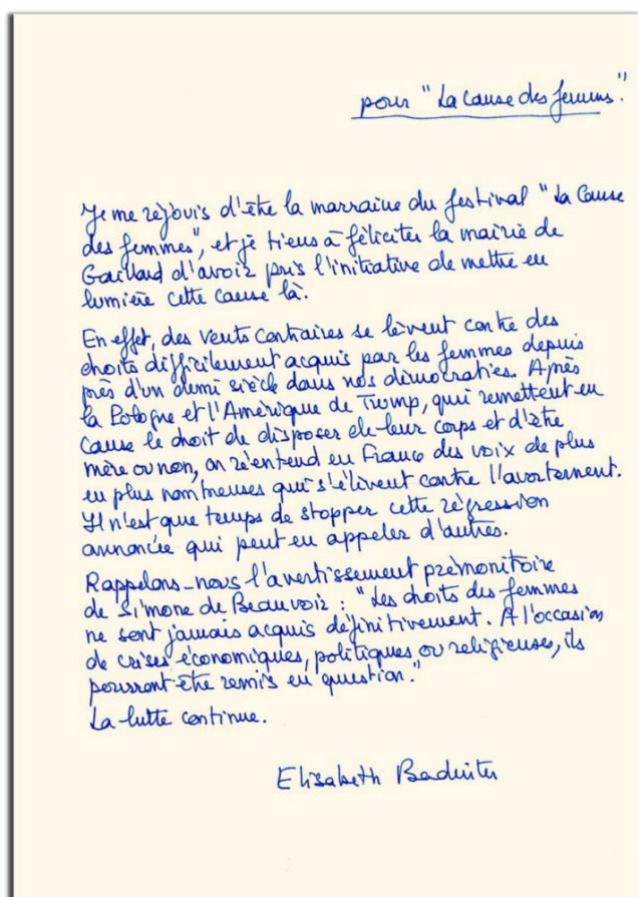 pour "La Cause des femmes".
Je me réjouis d'être la marraine du festival "La Cause
des femmes", et je tiens à féliciter la mairie de
Gaillard d'avoir pris l'initiative de mettre en
lumière cette cause là.
En effet, des vents contraires se lèvent contre des
droits difficilement acquis par les femmes depuis
près d'un demi siècle dans nos démocraties. Après
la Pologne et l'Amérique de Trump, qui remettent en
cause le droit de disposer de leur corps et d'être
mère ou non, on réentend en France des voix de plus
en plus nombreuses qui s'élèvent contre l'avortement.
Il n'est que temps de stopper cette régression
annoncée qui peut en appeler d'autres.
Rappelons-nous l'avertissement prémonitoire
de Simone de Beauvoir : "Les droits des femmes
ne sont jamais acquis définitivement. A l'occasion
de crises économiques, politiques ou religieuses, ils
pourront être remis en question."
La lutte continue.
Elisabeth Badinter